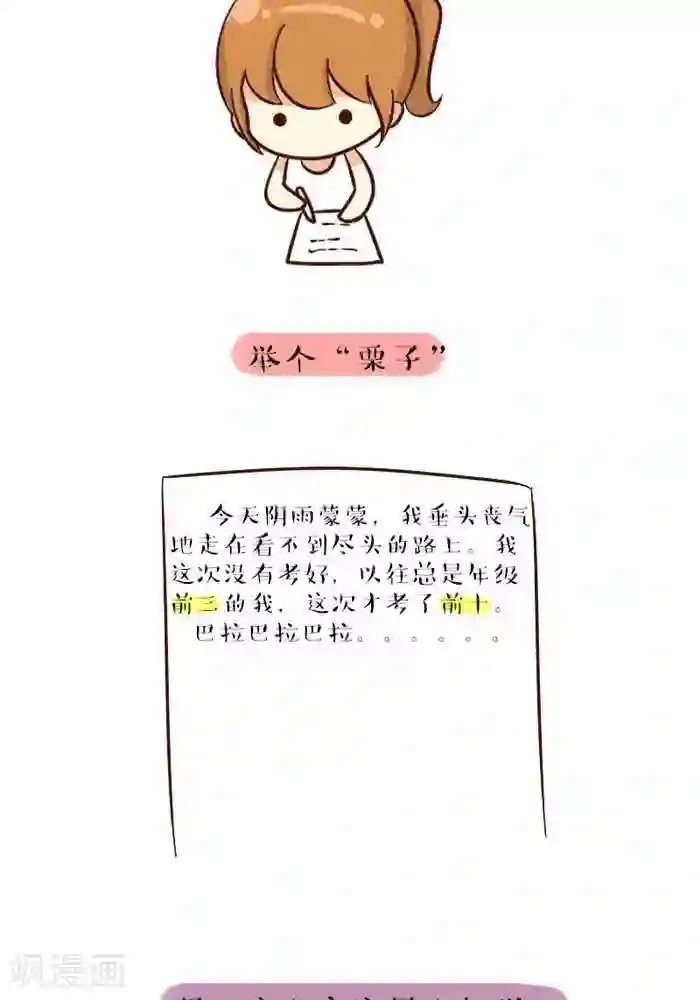 举个“栗子”
今天阴雨蒙蒙，我垂头丧气
地走在看不到尽头的路上。我
这次没有考好，以往总是年级
前三的我，这次才考了前十。
巴拉巴拉巴拉。。。。。。
飒漫画